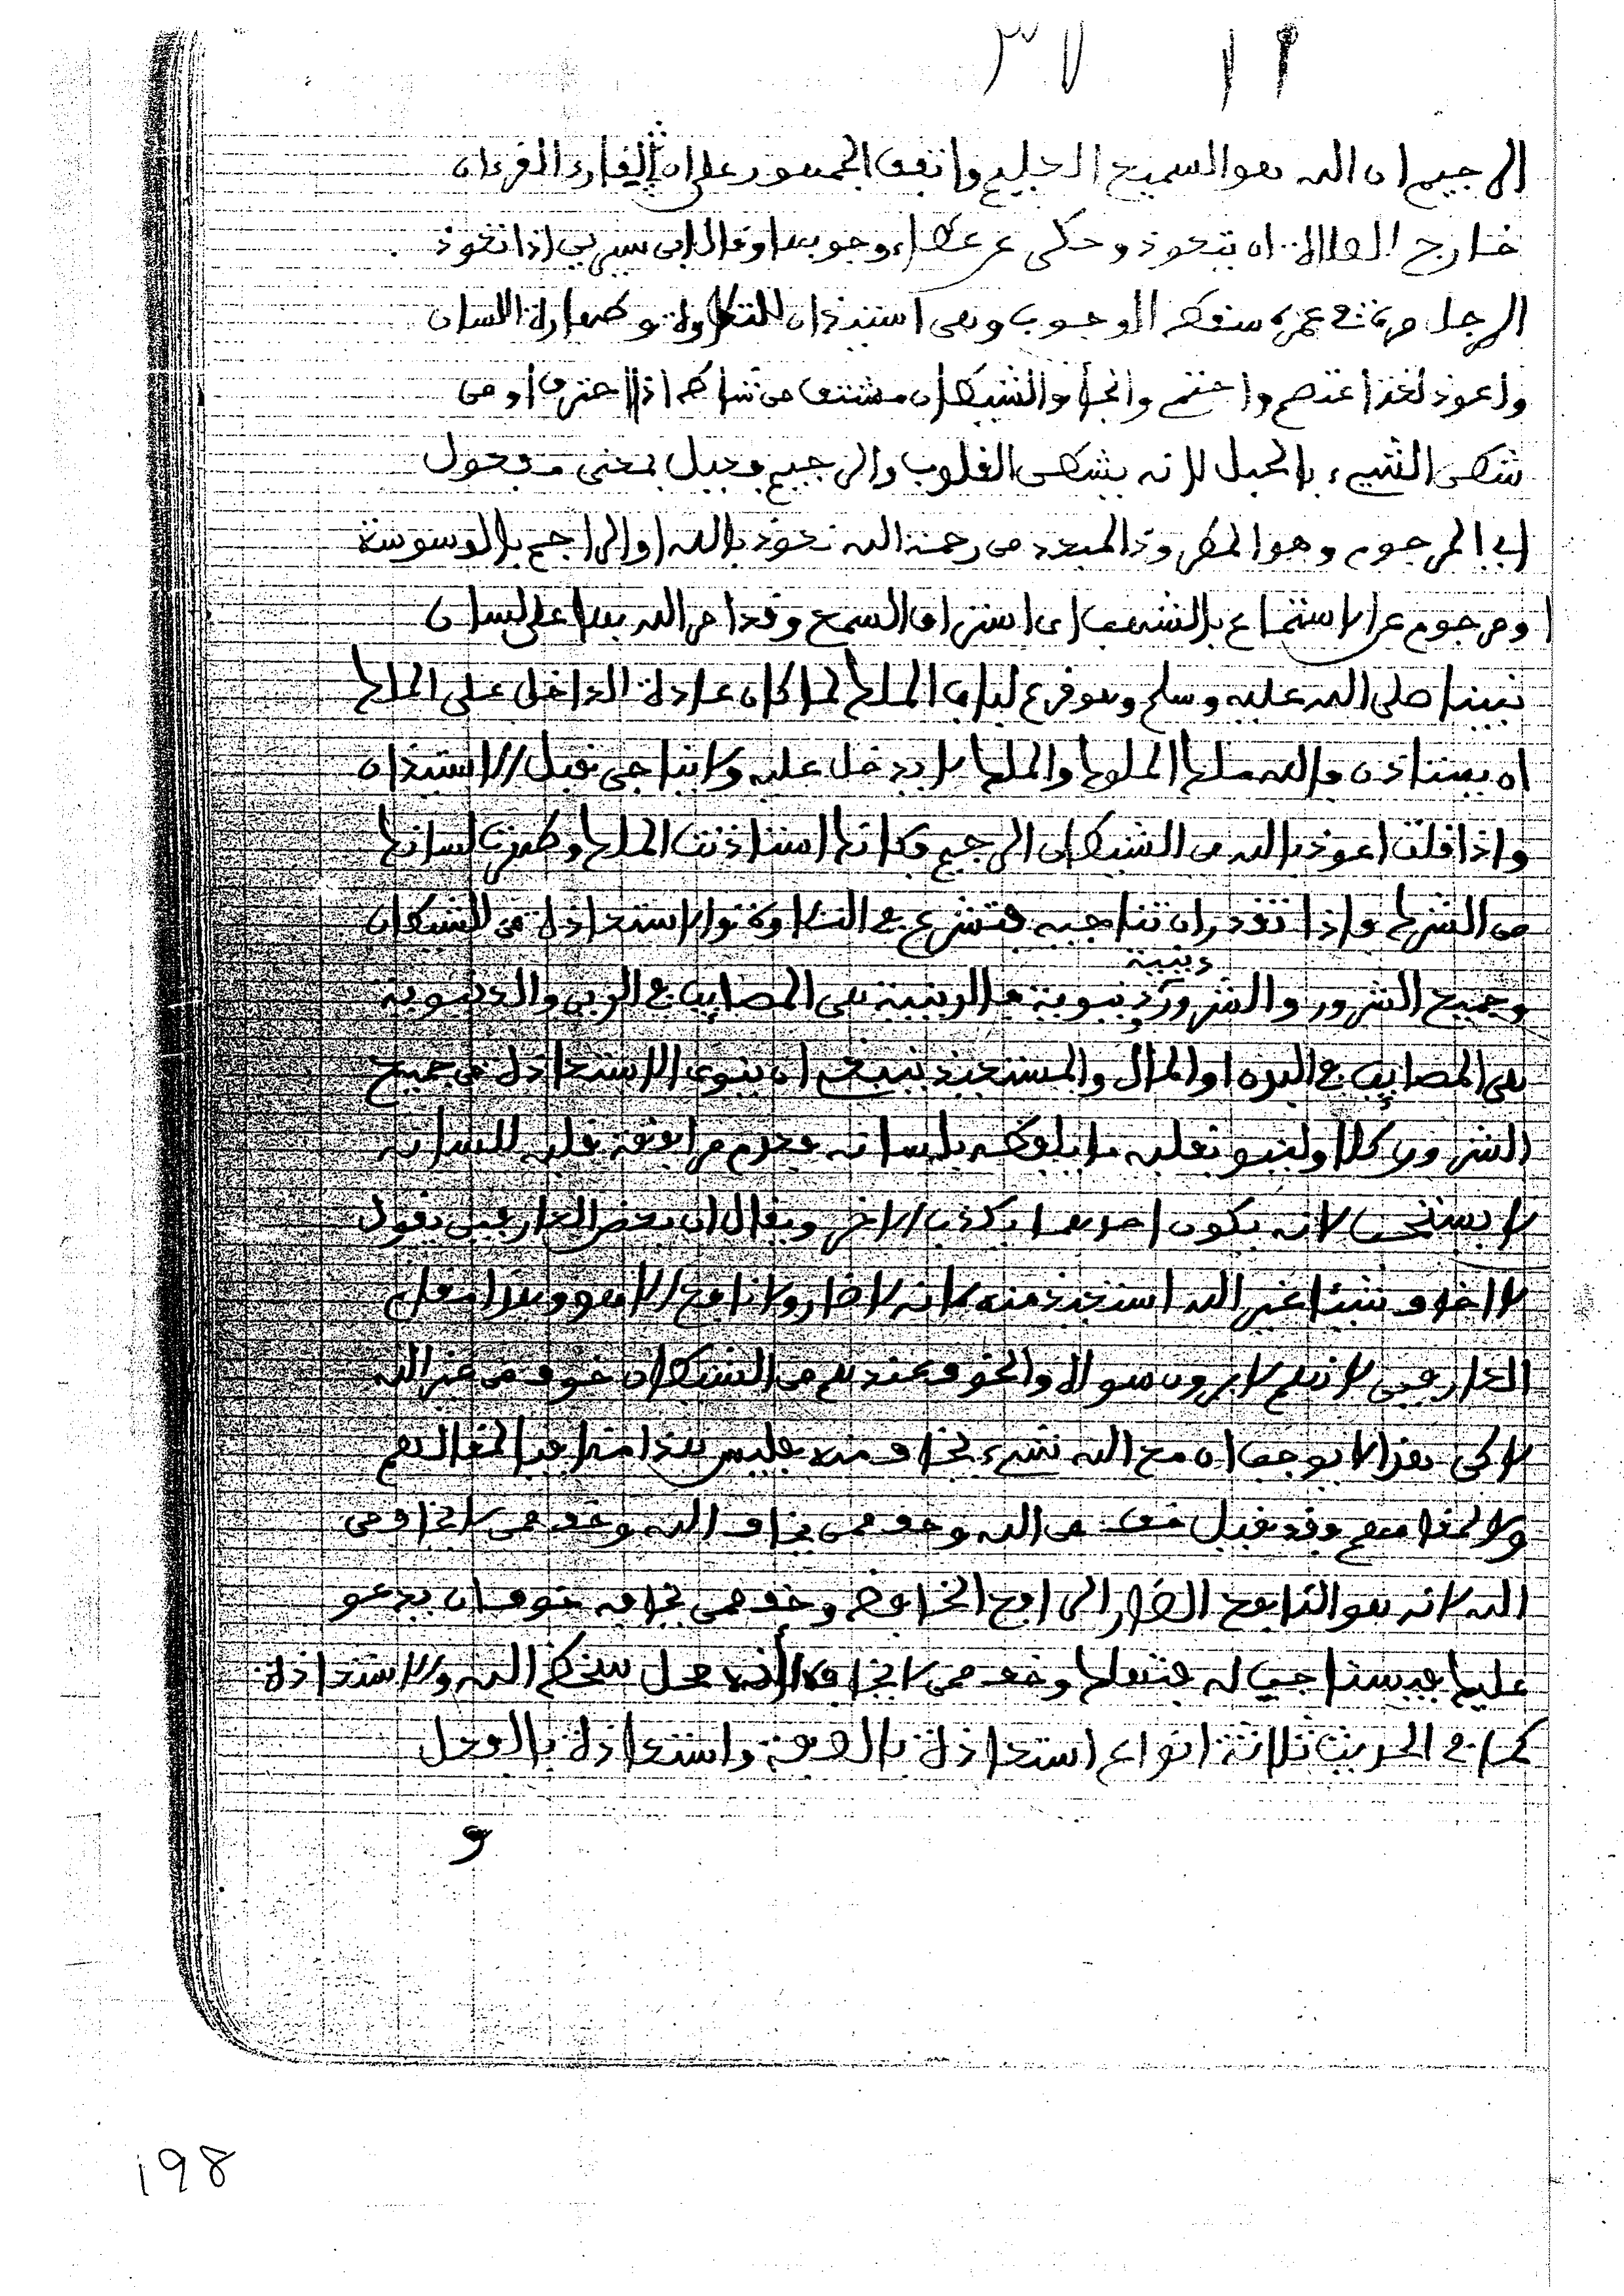 ٣٧ ١٢
الرجيم ان الله هو السميع العليم واتفق الجمهور على ان لقارئ القرءان
خارج الصلاة ان يتعوذ وحكى عن عطاء وجوبها وقال ابن سيرين اذا تعوذ
الرجل مرة في عمره سقط الوجوب وهي استيذان للتلاوة وطهارة اللسان
واعوذ لغة اعتصم واحتم والجأ والشيطان مشتق من شاط اذا احترق او من
شطن الشيء بالحبل لانه يشطن القلوب والرجيم فعيل بمعنى مفعول
اي المرجوم وهو المطرود المبعد من رحمة الله نعوذ بالله او الراجم بالوسوسة
او مرجوم عن الاستماع بالشهب اي استراق السمع وقد امر الله بها على لسان
نبينا صلى الله عليه وسلم وهو قرع لباب الملك لما كان عادة الداخل على الملك
ان يستاذن والله ملك الملوك والملك لا يدخل عليه ولا يناجى قبل الاستيذان
واذا قلت اعوذ بالله من الشيطان الرجيم فكانك استاذنت الملك وطهرت لسانك
من الشرك واذا تقدر ان تناجيه فتشرع في التلاوة تنو الاستعاذة من الشيطان
وجميع الشرور والشرور دينية دنيوية فالدينية هي المصايب في الدين والدنيوية
هي المصايب في البدن او المال والمستعيذ ينبغي ان ينوي الاستعاذة من جميع
الشرور كلا ولينو بقلبه ما يلفظ بلسانه فعدم مرافقة قلبه للسانه
لا يستحب لانه يكون احدهما يكذب الاخر ويقال ان بعض العارفين يقول
لا اخاف شيئا غير الله استعيذ منه لانه لا ضار ولا نافع الا هو وهذا مقام
العارفين لانهم لا يرون سواه والخوف عندهم من الشيطان خوف من غير الله
لاكن هذا لا يوجب ان مع الله شيء يخاف منه فليس هذا منافيا لمقالهم
ولا لمقامهم وقد قيل خف من الله وخف ممن يخاف الله وخف ممن لا يخاف من
الله لانه هو النافع الضار الرافع الخافض وخف ممن يخافه خوف ان يدعو
عليك فيستاجب له فتهلك وخف ممن لا يخافه لانه محل سخط الله والاستعاذة
كما في الحديث ثلاثة انواع استعاذة بالصفة واستعاذة بالفعل
و
198